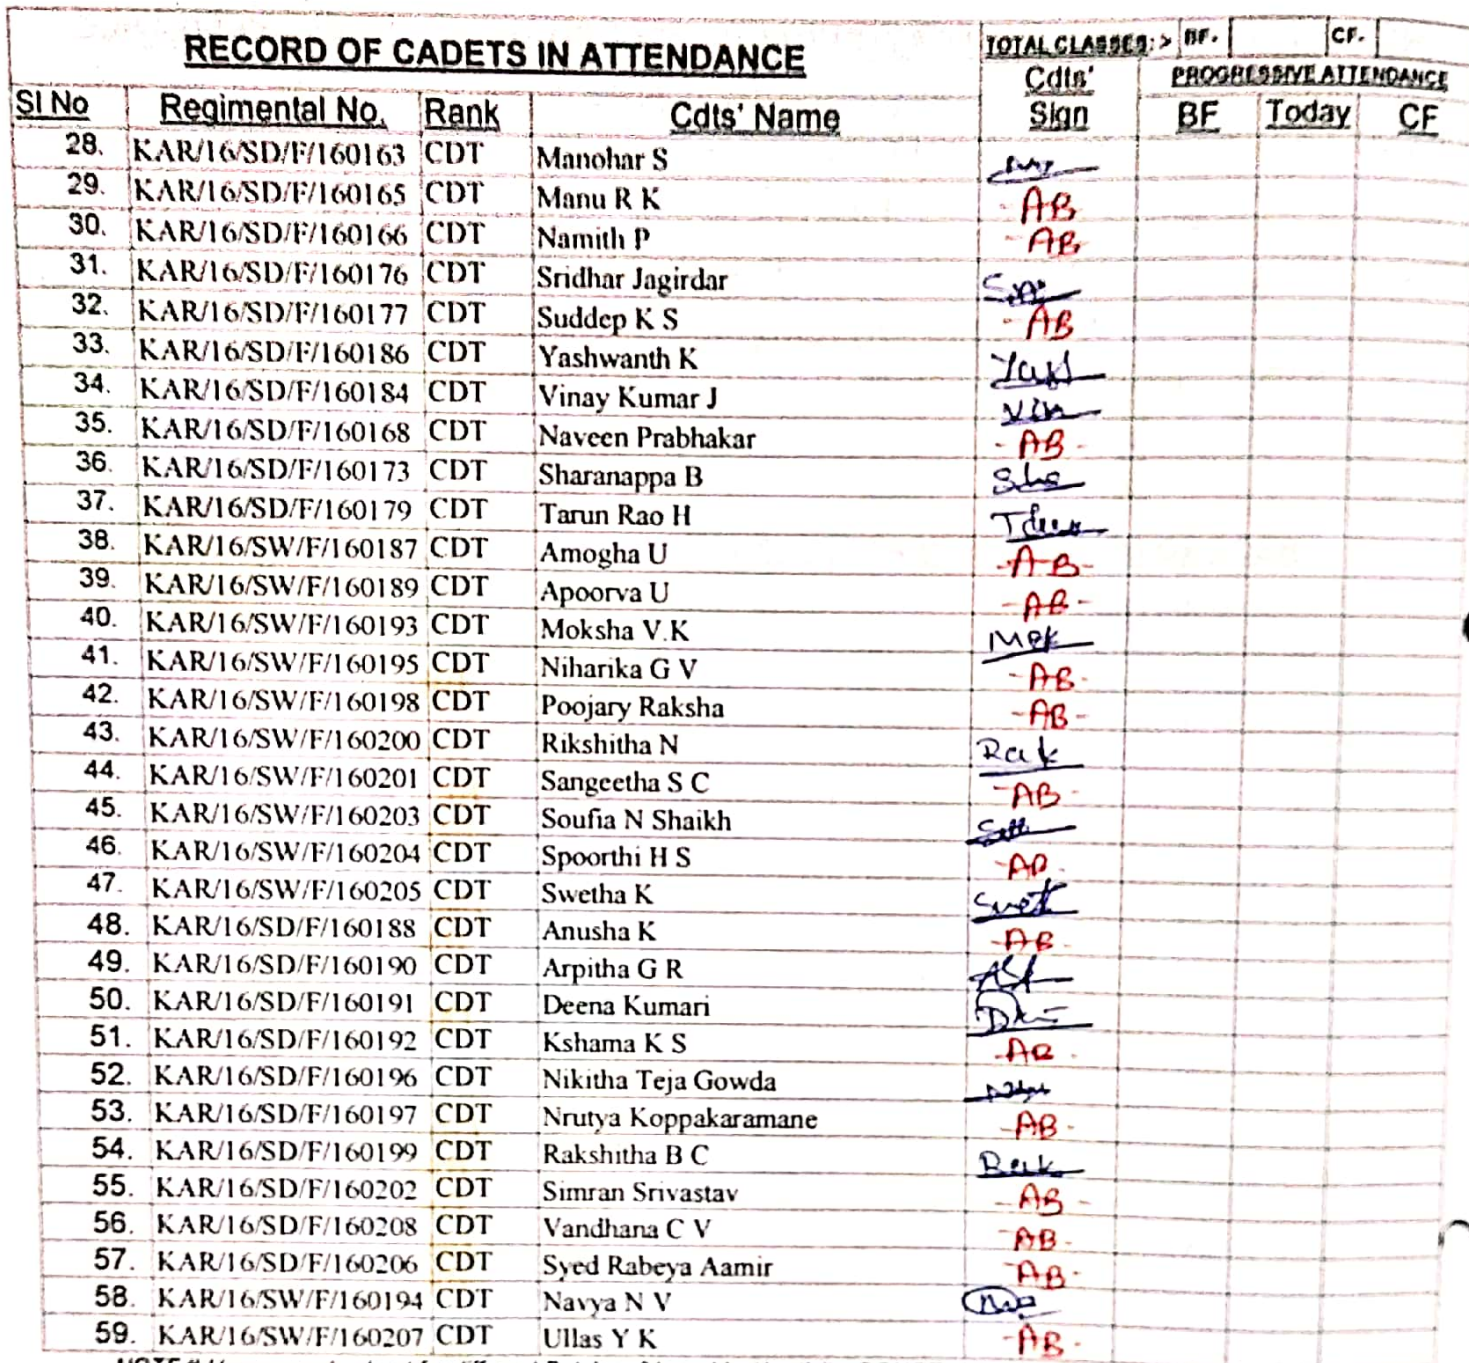 RECORD OF CADETS IN ATTENDANCE
TOTAL CLASSES:> BF. CF.
Cdts' Sign PROGRESSIVE ATTENDANCE
Sl No Regimental No. Rank Cdts' Name BF Today CF
28. KAR/16/SD/F/160163 CDT Manohar S
29. KAR/16/SD/F/160165 CDT Manu R K -AB
30. KAR/16/SD/F/160166 CDT Namith P -AB
31. KAR/16/SD/F/160176 CDT Sridhar Jagirdar
32. KAR/16/SD/F/160177 CDT Suddep K S -AB
33. KAR/16/SD/F/160186 CDT Yashwanth K
34. KAR/16/SD/F/160184 CDT Vinay Kumar J Vin
35. KAR/16/SD/F/160168 CDT Naveen Prabhakar -AB-
36. KAR/16/SD/F/160173 CDT Sharanappa B
37. KAR/16/SD/F/160179 CDT Tarun Rao H
38. KAR/16/SW/F/160187 CDT Amogha U -AB-
39. KAR/16/SW/F/160189 CDT Apoorva U -AB-
40. KAR/16/SW/F/160193 CDT Moksha V.K Mok
41. KAR/16/SW/F/160195 CDT Niharika G V -AB-
42. KAR/16/SW/F/160198 CDT Poojary Raksha -AB-
43. KAR/16/SW/F/160200 CDT Rikshitha N Rak
44. KAR/16/SW/F/160201 CDT Sangeetha S C -AB-
45. KAR/16/SW/F/160203 CDT Soufia N Shaikh
46. KAR/16/SW/F/160204 CDT Spoorthi H S -AB-
47. KAR/16/SW/F/160205 CDT Swetha K Swet
48. KAR/16/SD/F/160188 CDT Anusha K -AB-
49. KAR/16/SD/F/160190 CDT Arpitha G R
50. KAR/16/SD/F/160191 CDT Deena Kumari
51. KAR/16/SD/F/160192 CDT Kshama K S -AB-
52. KAR/16/SD/F/160196 CDT Nikitha Teja Gowda
53. KAR/16/SD/F/160197 CDT Nrutya Koppakaramane -AB-
54. KAR/16/SD/F/160199 CDT Rakshitha B C Rak
55. KAR/16/SD/F/160202 CDT Simran Srivastav -AB-
56. KAR/16/SD/F/160208 CDT Vandhana C V -AB-
57. KAR/16/SD/F/160206 CDT Syed Rabeya Aamir -AB-
58. KAR/16/SW/F/160194 CDT Navya N V
59. KAR/16/SW/F/160207 CDT Ullas Y K -AB-